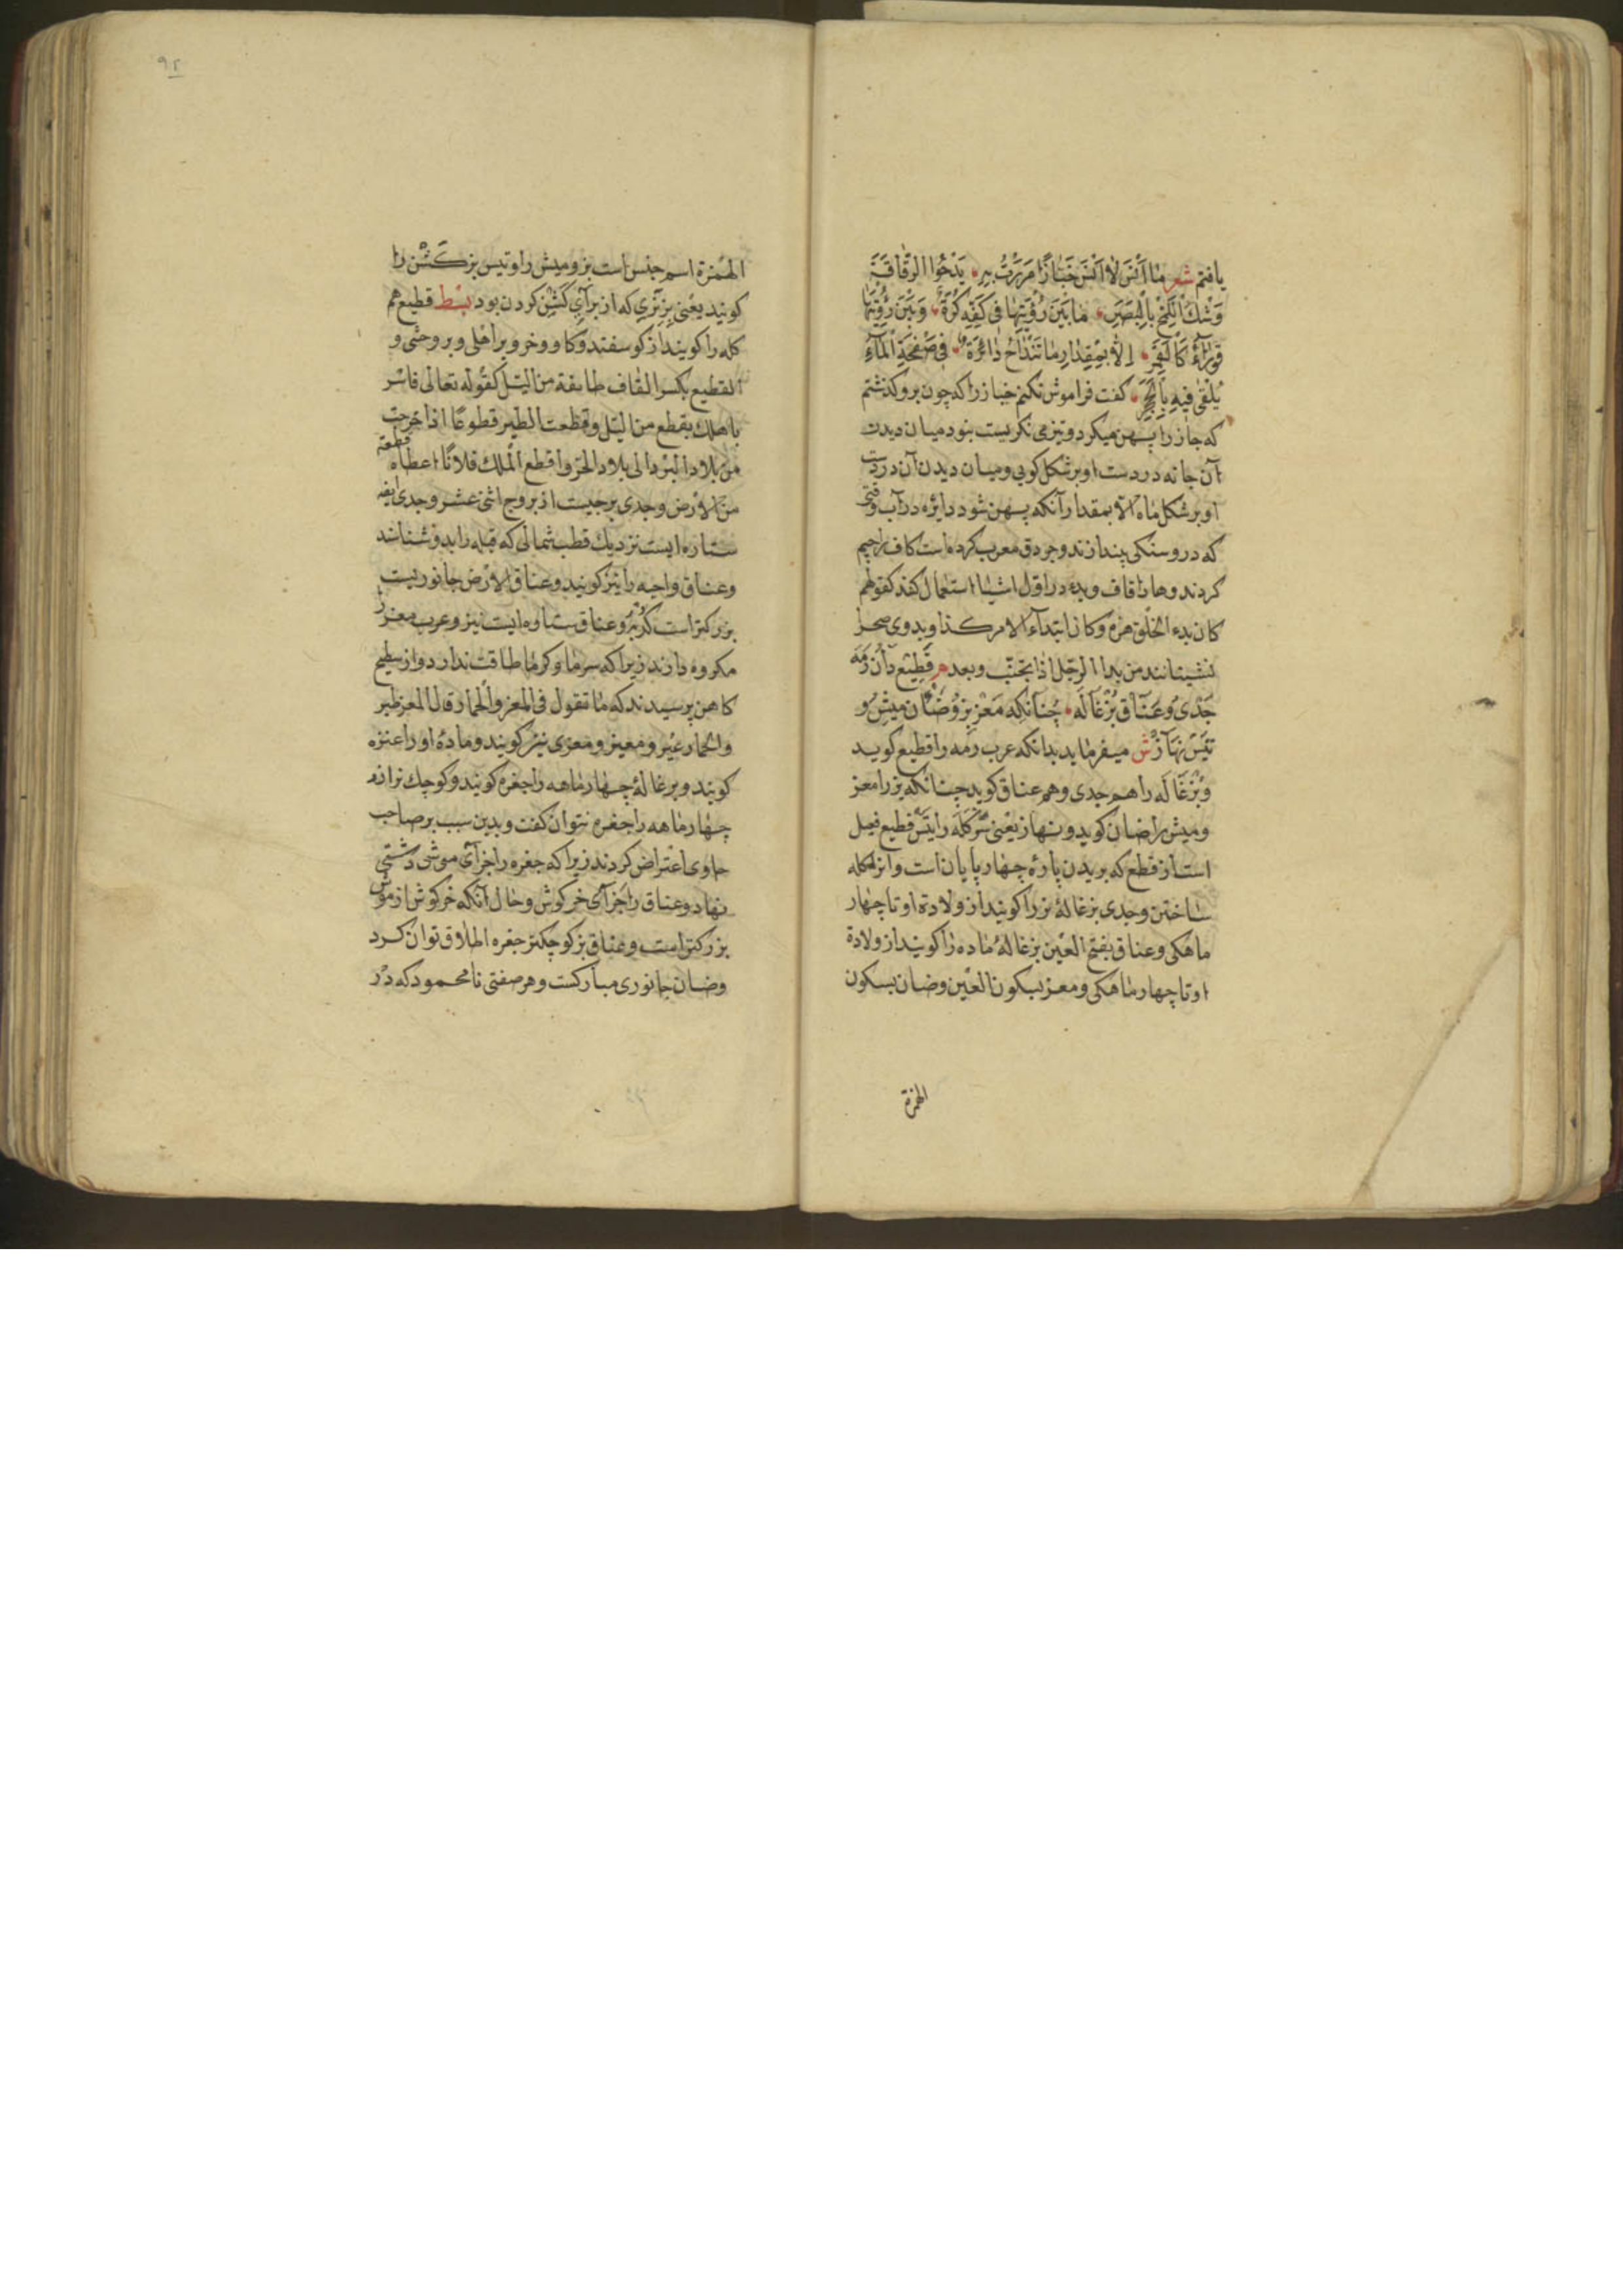 یافتم شعر ما انس لا انس خبازا مررت به یدحوا الرقاقة
وشك اللمح بالبصر ما بین رؤیتها فی کفه کرة وبین رؤیتها
قوراء کالقمر الا بمقدار ما تنداح دائرة فی صفحة المآء
یلقی فیه بالحجر کفت فراموش نکنم خباز را که چون برو کذشتم
که جاز را پهن میکرد و تیز می نکریست بنود میان دیدن
آن جانه در دست او بر شکل کویی و میان دیدن آن در دست
او بر شکل ماه الا بمقدار آنکه پهن شود دایره در آب وقتی
که در و سنکی بیندازند و جردق معرب کرده است کاف را جیم
کردند و ها را قاف و بدء در اول اشیا استعمال کنند کقولهم
کان بدء الخلق هزه وکان ابتدآء الامر کذا و بدوی صحرا
نشینانند من بدا الرجل اذا تجنب و بعده م قطیع دان رمه
جدی و عناق بزغاله چنانکه معز بز و ضان میش و
تیس نهاز ش میفرماید بدانکه عرب رمه را قطیع کوید
و بزغاله را هم جدی و هم عناق کوید چنانکه بز را معز
و میش را ضان کوید و نهاز یعنی سر کله را تیس قطیع فعیل
است از قطع که بریدن پاره چهار پایان است و از کله
ساختن و جدی بزغالهٔ نر را کویند از ولادة او تا چهار
ماهکی و عناق بفتح العین بزغالهٔ ماده را کویند از ولادة
او تا چهار ماهکی و معز بسکون العین و ضان بسکون
الهمزة
۹۲
الهمزة اسم جنس است بز و میش را و تیس بز کشن را
کویند یعنی بز نری که از برای کشن کردن بود بسط قطیع هم
کله را کویند از کوسفند و کاو و خر و بر اهلی و بر وحشی و
القطیع بکسر القاف طایفة من اللیل کقوله تعالی فاسر
باهلك بقطع من اللیل و قطعت الطیر قطوعا اذا خرجت
من بلاد البرد الی بلاد الحر و اقطع الملك فلانا اعطاه قطعة
من الارض و جدی برجیست از بروج اثنی عشر و جدی ایضا
ستاره ایست نزدیك قطب شمالی که قبله را بدو شناسند
و عناق واجبه را نیز کویند و عناق الارض جانوریست
بزرکتر است کربز و عناق ستاره ایست نیز و عرب معز را
مکروه دارند زیرا که سرما و کرما طاقت ندارد و از سطیح
کاهن پرسیدند که ما تقول فی المعز والحمار قال المعز ظیر
والحمار عیر و معیز و معزی نیز کویند و مادهٔ او را عنزه
کویند و بزغالهٔ چهار ماهه را جفره کویند و کوچك تر از
چهار ماهه را جفره نتوان کفت و بدین سبب بر صاحب
حاوی اعتراض کردند زیرا که جفره را جزآی موشی دشتی
نهاد و عناق را جزآی خرکوش و حال آنکه خرکوش از موش
بزرکتر است و عناق بز کوچکتر جفره اطلاق توان کرد
و ضان جانوری مبارکست و هر صفتی نامحمود که در